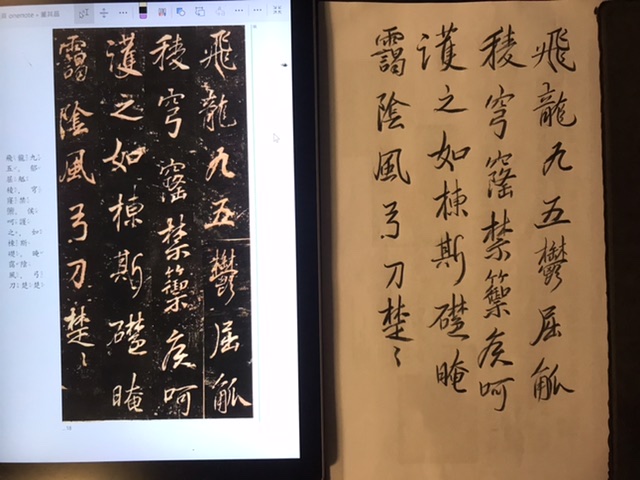 飛龍九五鬱屈觚
稜穹窿禁籞矦呵
護之如棟斯礎晻
靄陰風弓刀楚〻
飛龍九五鬱屈觚
稜穹窿禁籞矦呵
護之如棟斯礎晻
靄陰風弓刀楚〻